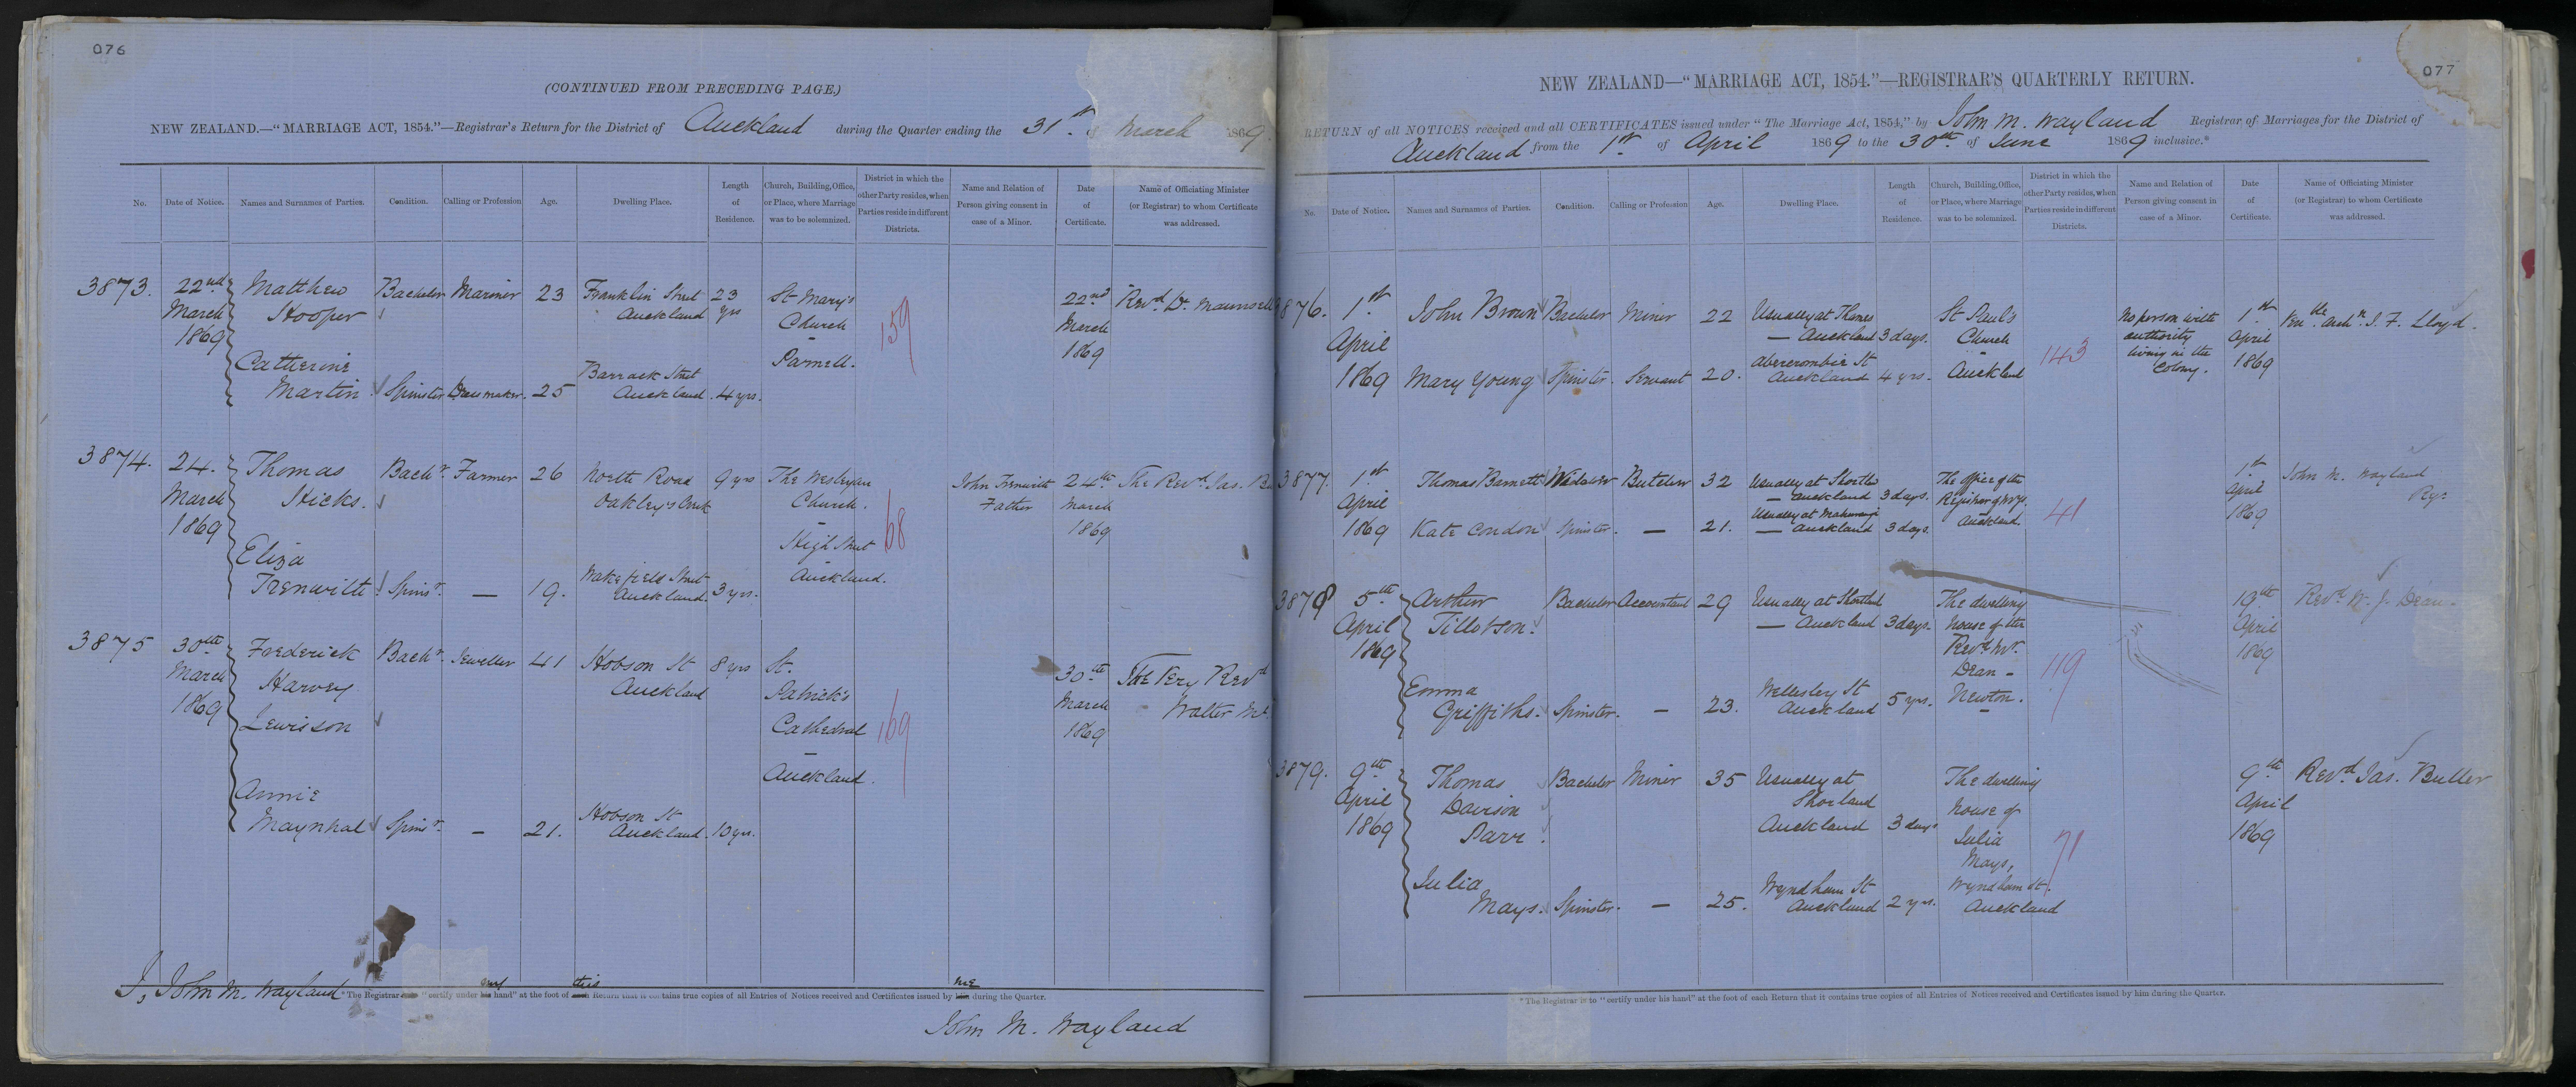 076
(CONTINUED FROM PRECEDING PAGE.)
NEW ZEALAND.—"MARRIAGE ACT, 1854."—Registrar's Return for the District of Auckland during the Quarter ending the 31st March 1869.
No. Date of Notice. Names and Surnames of Parties. Condition. Calling or Profession Age. Dwelling Place. Length of Residence. Church, Building, Office, or Place, where Marriage was to be solemnized. District in which the other Party resides, when Parties reside in different Districts. Name and Relation of Person giving consent in case of a Minor. Date of Certificate. Name of Officiating Minister (or Registrar) to whom Certificate was addressed.
3873. 22nd Matthew Bachelor Mariner 23 Franklin Street 23 St. Mary's 22nd Revd. Dr. Maunsell
March Hooper Auckland yrs Church 159 March
1869 Parnell. 1869
Catherine Barrack Street
Martin Spinster Dressmaker. 25 Auckland. 4 yrs.
3874. 24. Thomas Bachr. Farmer 26 North Road 9 yrs The Wesleyan John Trenwith 24th The Revd. Jas.
March Hicks. Oakley's Creek Church. Father March
1869 High Street 68 1869
Eliza Wakefield Street Auckland.
Trenwith Spinsr. — 19. Auckland. 3 yrs.
3875 30th Frederick Bachr. Jeweller 41 Hobson St 8 yrs St. 30th The Very Revd
March Harvey Auckland Patrick's March Walter
1869 Lewisson Cathedral 169 1869
Auckland.
Annie Hobson St
Spinsr. — 21. Auckland. 10 yrs.
I, John M. Wayland *The Registrar "certify under my hand" at the foot of this Return that it contains true copies of all Entries of Notices received and Certificates issued by me during the Quarter.
John M. Wayland
077
NEW ZEALAND—"MARRIAGE ACT, 1854."—REGISTRAR'S QUARTERLY RETURN.
RETURN of all NOTICES received and all CERTIFICATES issued under "The Marriage Act, 1854," by John M. Wayland Registrar of Marriages for the District of
Auckland from the 1st of April 1869 to the 30th of June 1869 inclusive.*
No. Date of Notice. Names and Surnames of Parties. Condition. Calling or Profession Age. Dwelling Place. Length of Residence. Church, Building, Office, or Place, where Marriage was to be solemnized. District in which the other Party resides, when Parties reside in different Districts. Name and Relation of Person giving consent in case of a Minor. Date of Certificate. Name of Officiating Minister (or Registrar) to whom Certificate was addressed.
3876. 1st John Brown Bachelor Miner 22 Usually at Thames St Paul's No person with 1st Ven'ble. Archn. J. F. Lloyd.
April — Auckland 3 days. Church authority April
1869 Mary Young Spinster. Servant 20. Abercrombie St Auckland 4 yrs. Auckland 143 living in the Colony. 1869
3877. 1st Thomas Barnett Widower Butcher 32 Usually at Shortld The office of the 1st John M. Wayland
April — Auckland 3 days. Registrar of Mges. April Regr
1869 Kate Condon Spinster. — 21. Usually at Mahurangi — Auckland 3 days. Auckland 41 1869
3878 5th Arthur Bachelor Accountant 29 Usually at Shortland The dwelling 19th Revd. W. J. Dean
April Tillotson. — Auckland 3 days. house of the April
1869 Revd. Mr. 1869
Emma Wellesley St Dean - 119
Griffiths. Spinster. — 23. Auckland 5 yrs. Newton.
3879. 9th Thomas Bachelor Miner 35 Usually at The dwelling 9th Revd. Jas. Buller
April Davison Shorland house of April
1869 Parr. Auckland 3 days Julia 71 1869
Mays,
Julia Wyndham St Wyndham St.
Mays. Spinster. — 25. Auckland 2 yrs. Auckland
*The Registrar is to "certify under his hand" at the foot of each Return that it contains true copies of all Entries of Notices received and Certificates issued by him during the Quarter.